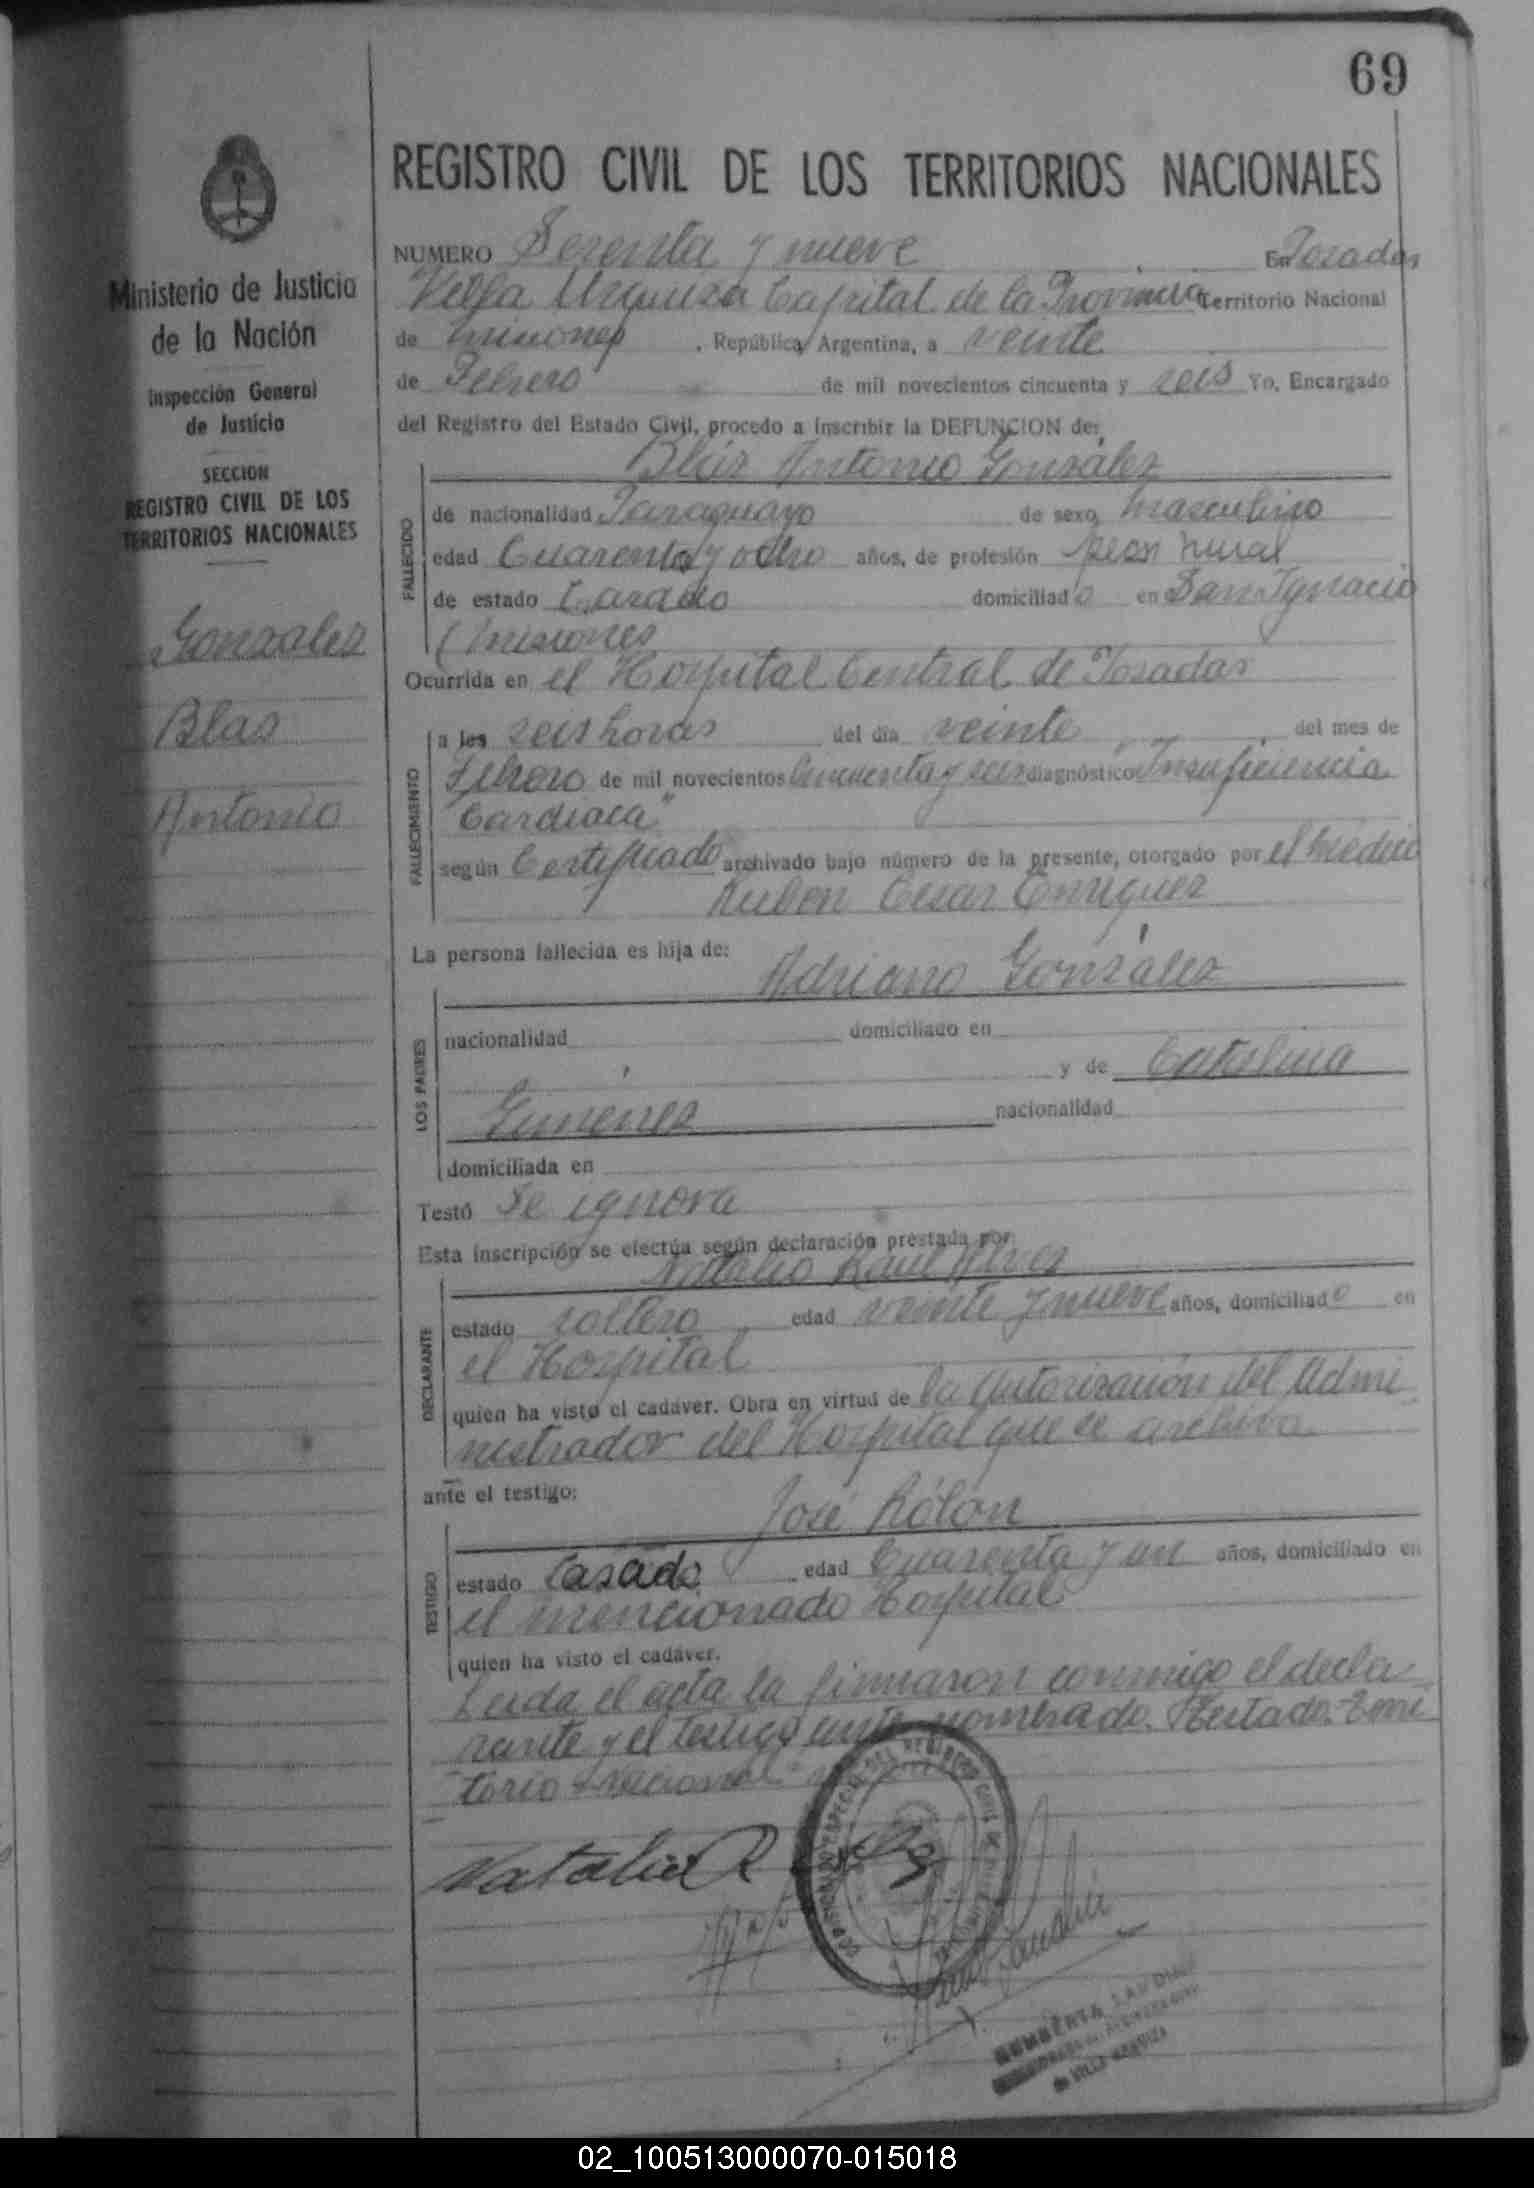 69
REGISTRO CIVIL DE LOS TERRITORIOS NACIONALES
Ministerio de Justicia
de la Nación
Inspección General
de Justicia
SECCION
REGISTRO CIVIL DE LOS
TERRITORIOS NACIONALES
Gonzalez
Blas
Antonio
NUMERO Sesenta y nueve En Posadas
Villa Urquiza Capital de la Provincia Territorio Nacional
de Misiones, República Argentina, a veinte
de Febrero de mil novecientos cincuenta y seis Yo, Encargado
del Registro del Estado Civil, procedo a inscribir la DEFUNCION de:
Blás Antonio González
FALLECIDO
de nacionalidad Paraguayo de sexo masculino
edad Cuarenta y ocho años, de profesión peon rural
de estado Casado domiciliado en San Ignacio
(Misiones
Ocurrida en el Hospital Central de Posadas
FALLECIMIENTO
a las seis horas del día veinte del mes de
Febrero de mil novecientos Cincuenta y seis diagnóstico "Insuficiencia
Cardiaca"
según Certificado archivado bajo número de la presente, otorgado por el médico
Ruben Cesar Enriquez
La persona fallecida es hija de:
Adriano González
LOS PADRES
nacionalidad domiciliado en
y de Catalina
Gimenez nacionalidad
domiciliada en
Testó Se ignora
Esta inscripción se efectúa según declaración prestada por:
Natalio Raul Alvez
DECLARANTE
estado soltero edad veinte y nueve años, domiciliado en
el Hospital
quien ha visto el cadáver. Obra en virtud de la autorización del Admi
nistrador del Hospital que se archiva
ante el testigo:
José Rólón
TESTIGO
estado Casado edad Cuarenta y un años, domiciliado en
el mencionado Hospital
quien ha visto el cadáver.
Leida el acta la firmaron conmigo el decla
rante y el testigo ante nombrado. Testado: Terri
torio Nacional
Natalio R
DE VILLA URQUIZA
02_100513000070-015018